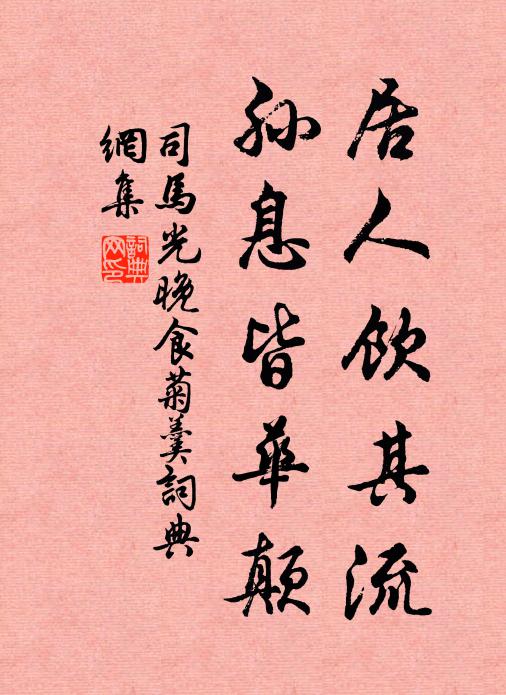 居人飲其流
孫息皆華顛
司馬光晚食菊羹詞典
網集
詞典
网印